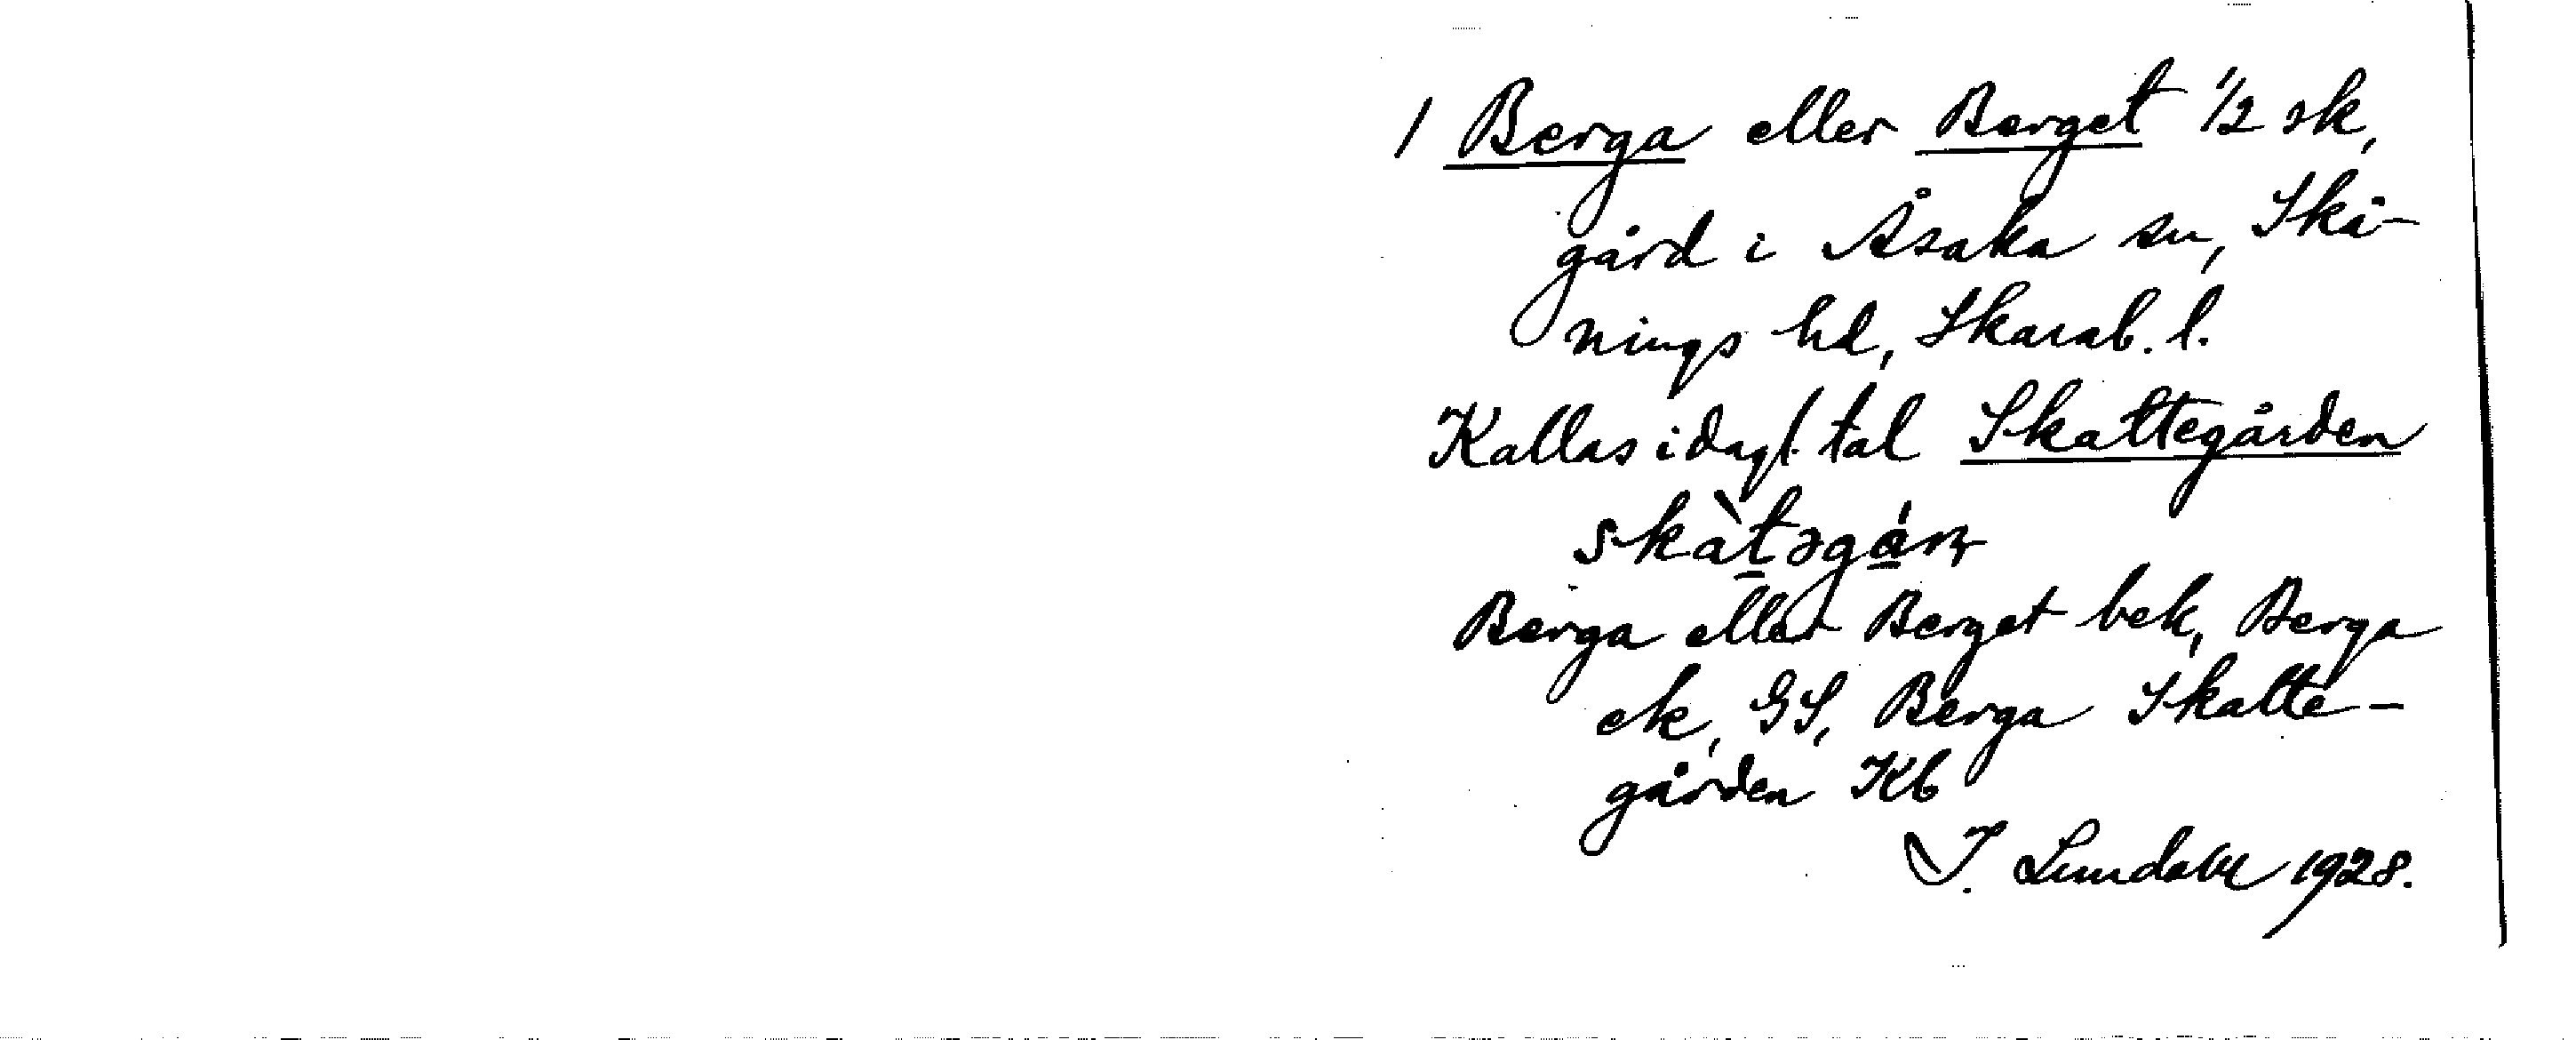 1 Berga eller Berget 1/2 sk,
gård i Åsaka sn, Skå-
nings hd, Skarab. l.
Kallas i dagl. tal Skattegården
skàt̠əgá̠rn
Berga eller Berget bek, Berga
ek, GS, Berga Skatte-
gården Kb
I. Lundahl 1928.